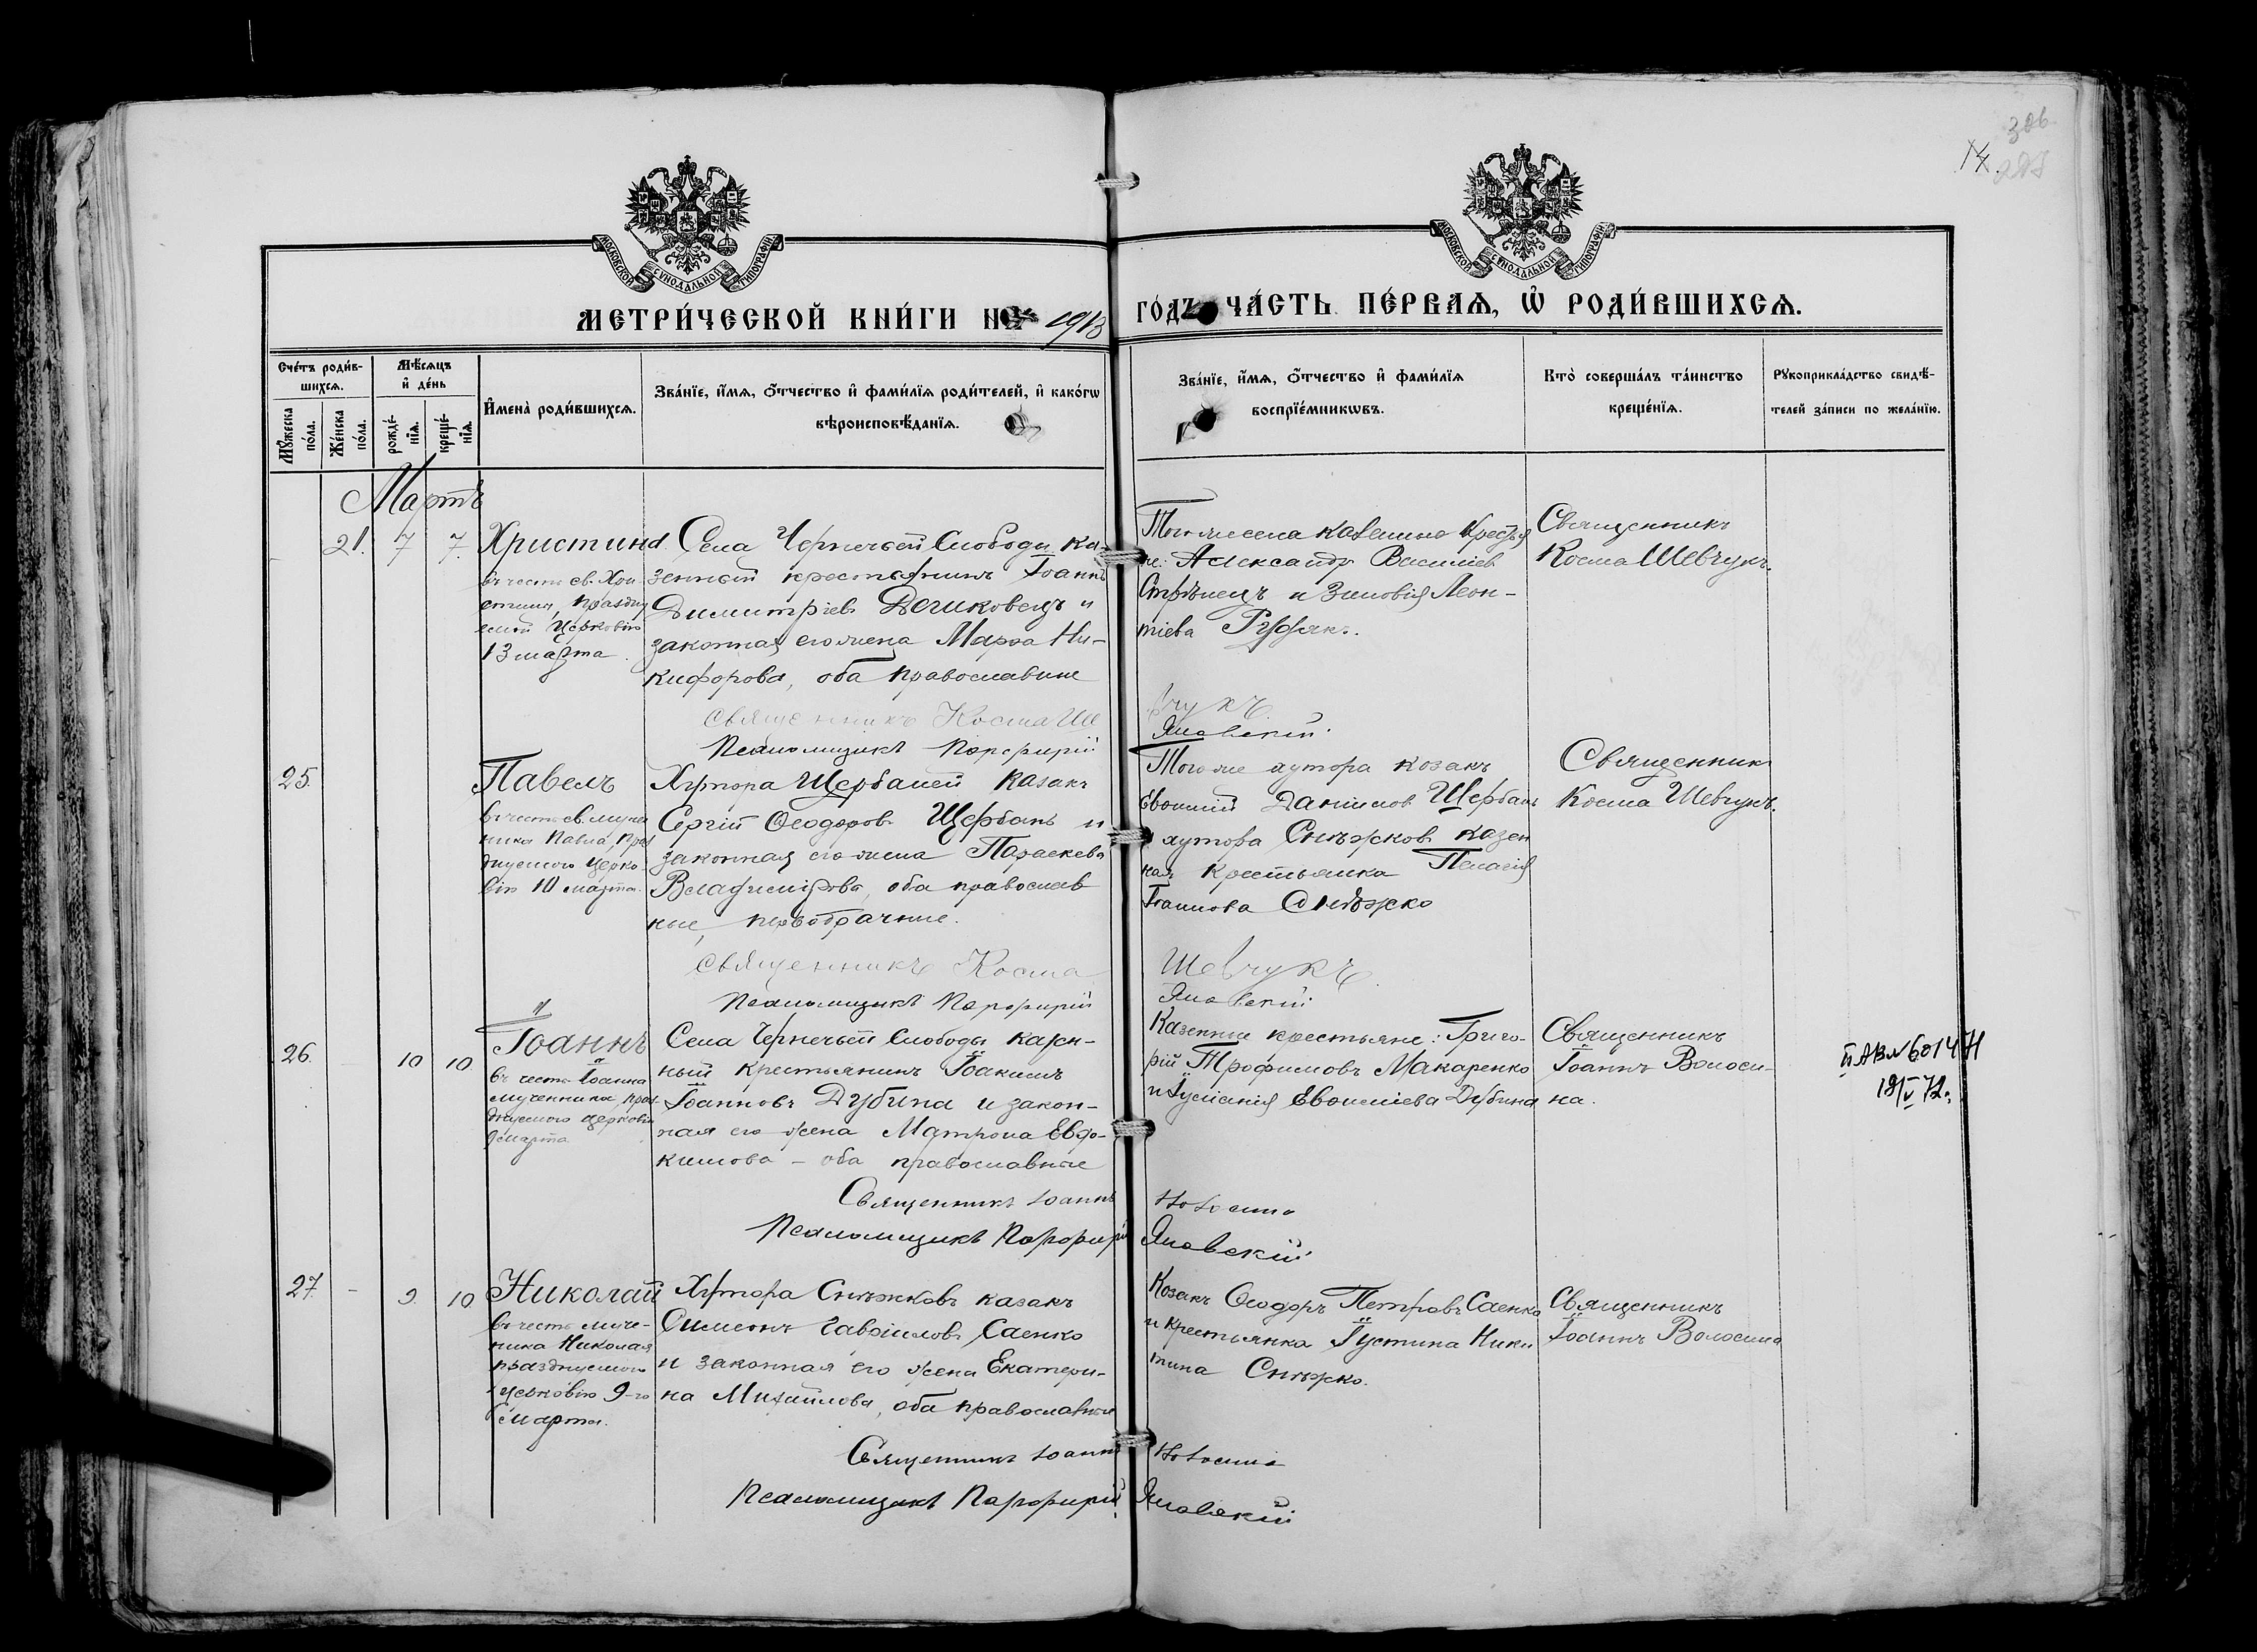 306
14.
МОСКОВСКОЙ СѴНОДАЛЬНОЙ ТИПОГРАФІИ
МОСКОВСКОЙ СѴНОДАЛЬНОЙ ТИПОГРАФІИ
МЕТРИ́ЧЕСКОЙ КНИ́ГИ НА 1913
ГО́ДЪ ЧА́СТЬ ПЕ́РВАѦ, Ѽ РОДИ́ВШИХСѦ.
Сче́тъ роди́в-
шихсѧ.
Мѣ́сѧцъ
и҆ де́нь
Мꙋ́жеска
по́ла.
Же́нска
по́ла.
рожде́-
нїѧ.
креще́-
нїѧ.
И҆мена̀ роди́вшихсѧ.
Зва́нїе, и҆́мѧ, ѻ҆́тчество и҆ фами́лїѧ роди́телей, и҆ како́гѡ
вѣроисповѣ́данїѧ.
Зва́нїе, и҆́мѧ, ѻ҆́тчество и҆ фами́лїѧ
воспрїе́мникѡвъ.
Кто̀ соверша́лъ та́инство
креще́нїѧ.
Рꙋкоприкла́дство свидѣ́-
телей за́писи по жела́нїю.
Мартъ
21. 7 7.
Христина
въ честь св. Хри
стины, праздну
емой Церковію
13 марта.
Села Чернечьей Слободы ка-
зенный крестьянинъ Іоаннъ
Димитріевъ Дешковецъ и
законная его жена Марѳа Ни-
кифорова, оба православные
Того же села казенные крестья
не: Александръ Василіев
Стрѣлецъ и Зиновія Леон-
тіева
Священникъ
Косма Шевчукъ.
Священникъ Косма Ше
вчукъ.
Псаломщикъ Порфирій
Яновскій.
25.
Павелъ
въ честь св. муче
ника Павла, праз
днуемого Церко-
вію 10 марта.
Хутора Щербаней казакъ
Сергій Ѳеодоровъ Щербань и
законная его жена Параскева
Владимірова, оба православ
ные, первобрачные.
Того же хутора козакъ
Евѳимій Даниилов Щербань
и хутора Снѣжков казен
ная крестьянка Пелагія
Іоаннова Снѣжко
Священник
Косма Шевчукъ.
Священникъ Косма
Шевчукъ.
Псаломщикъ Порфирій
Яновскій
26. 10 10
Іоаннъ
въ честь Іоанна
мученника, праз-
днуемого церковію
9 марта
Села Чернечьей Слободы казен-
ный крестьянинъ Іоакимъ
Іоанновъ Дубина и закон-
ная его жена Матрона Евдо-
кимова – оба православные
Казенные крестьяне: Григо-
рій Трофимовъ Макаренко
и Іуліанія Евѳиміева Дубина
Священникъ
Іоаннъ Волоси-
на.
II АВ N 601471
18/V 72г.
Священникъ Іоаннъ
Волосина
Псаломщикъ Порфирій
Яновскій
27. - 9. 10
Николай
въ честь муче-
ника Николая
празднуемого
Церковію 9-го
марта.
Хутора Снѣжковъ казакъ
Симеонъ Гавріиловъ Саенко
и законная его жена Екатери-
на Михайлова, оба православные
Козакъ Ѳеодоръ Петровъ Саенко
и крестьянка Іустина Ники
тина Снѣжко.
Священникъ
Іоаннъ Волосина
Священникъ Іоаннъ
Волосина
Псаломщикъ Порфирій
Яновскій